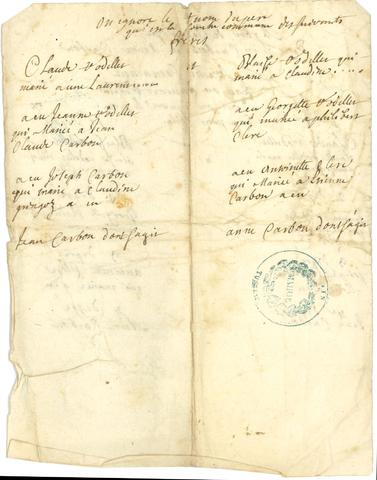 on ignore le nom du pere
qui est la souche commune des suivants
freres
Claude Vodelles et
marié a une Laurence
a eu Jeanne Vodelles
qui Mariée a Jean
Claude Carbon
a eu Joseph Carbon
qui marié a Claudine
a eu
Jean Carbon dont s'agit
Blaise Vodelles qui
marié a Claudine....
a eu Georgette Vodelles
qui mariée a philibert
Clerc
a eu Antoinette Clerc
qui Mariée a Etienne
Carbon a eu
anne Carbon dont s'agit
MAIRIE